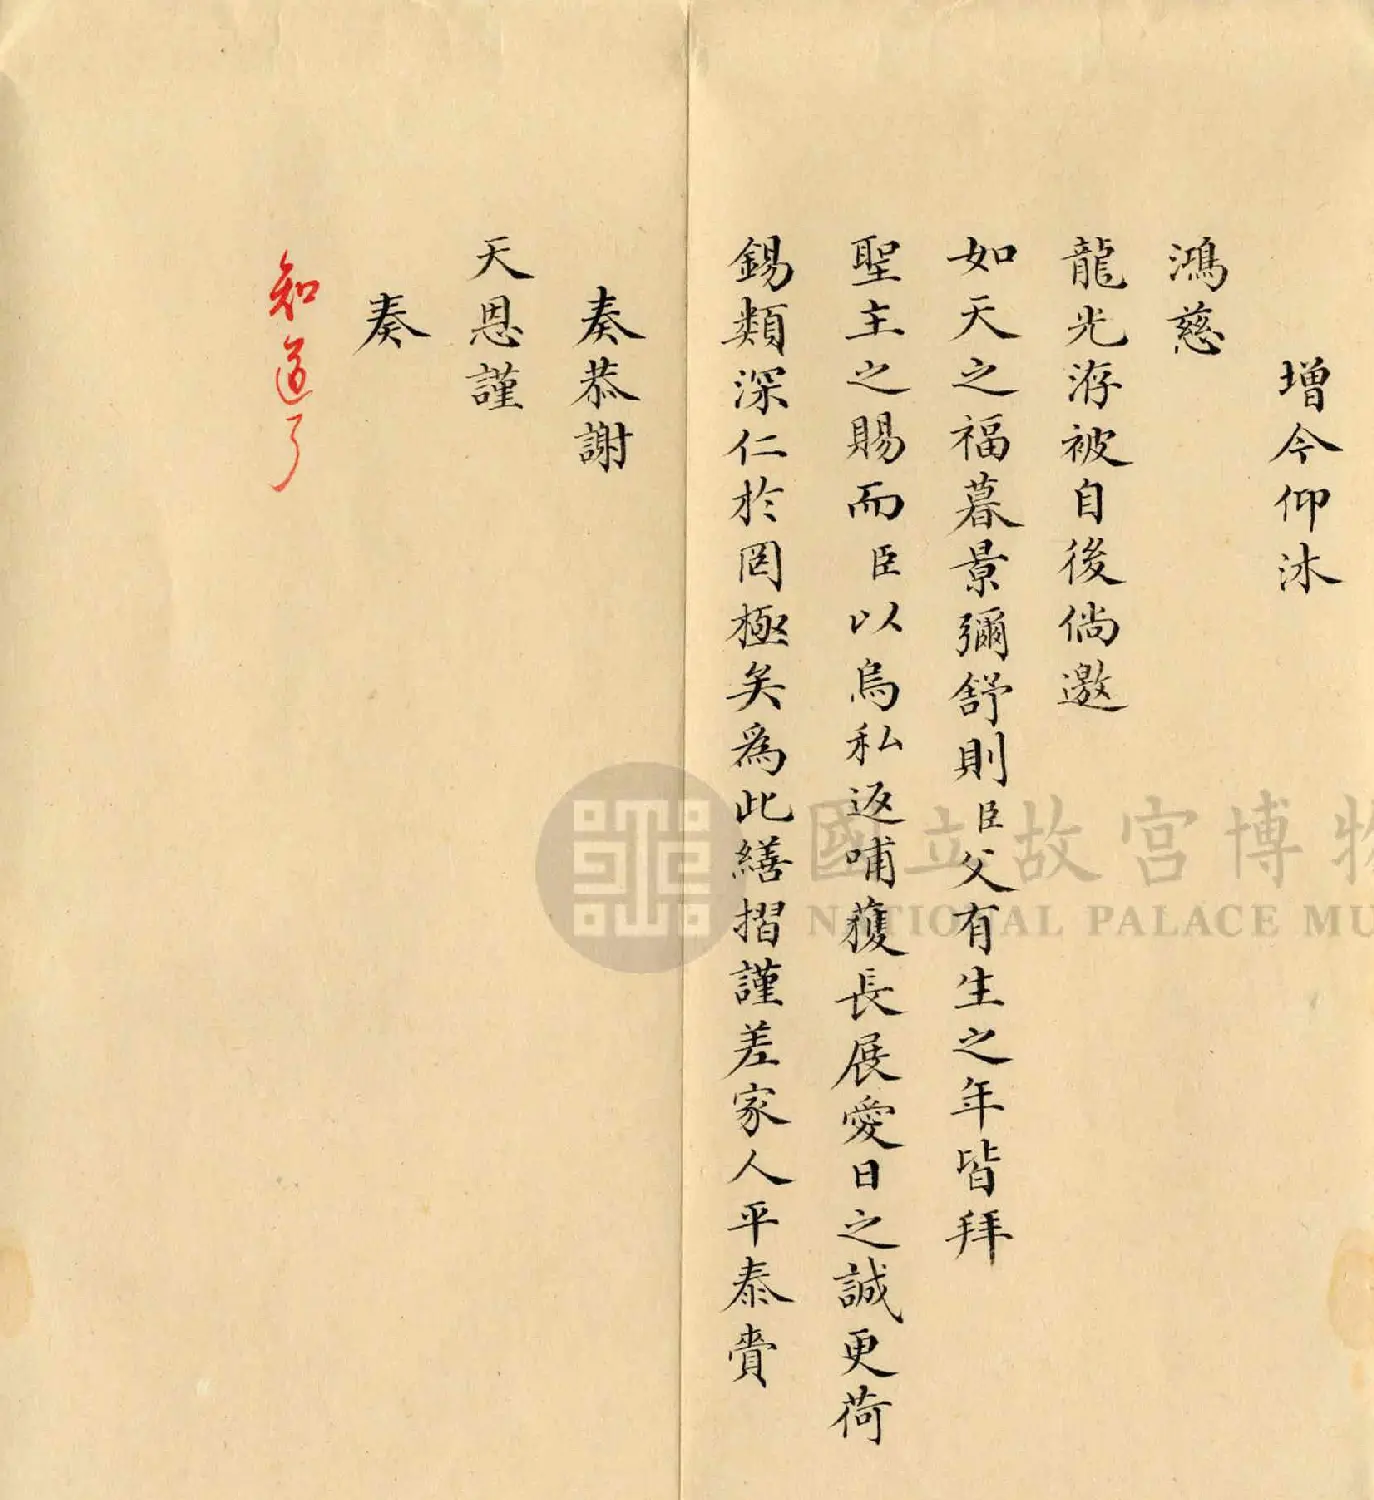 增今仰沐
鴻慈
龍光洊被自後倘邀
如天之福暮景彌舒則臣父有生之年皆拜
聖主之賜而臣以烏私返哺獲長展愛日之誠更荷
錫類深仁於罔極矣為此繕摺謹差家人平泰賫
奏恭謝
天恩謹
奏
知道了
國立故宮博物
NATIONAL PALACE MU